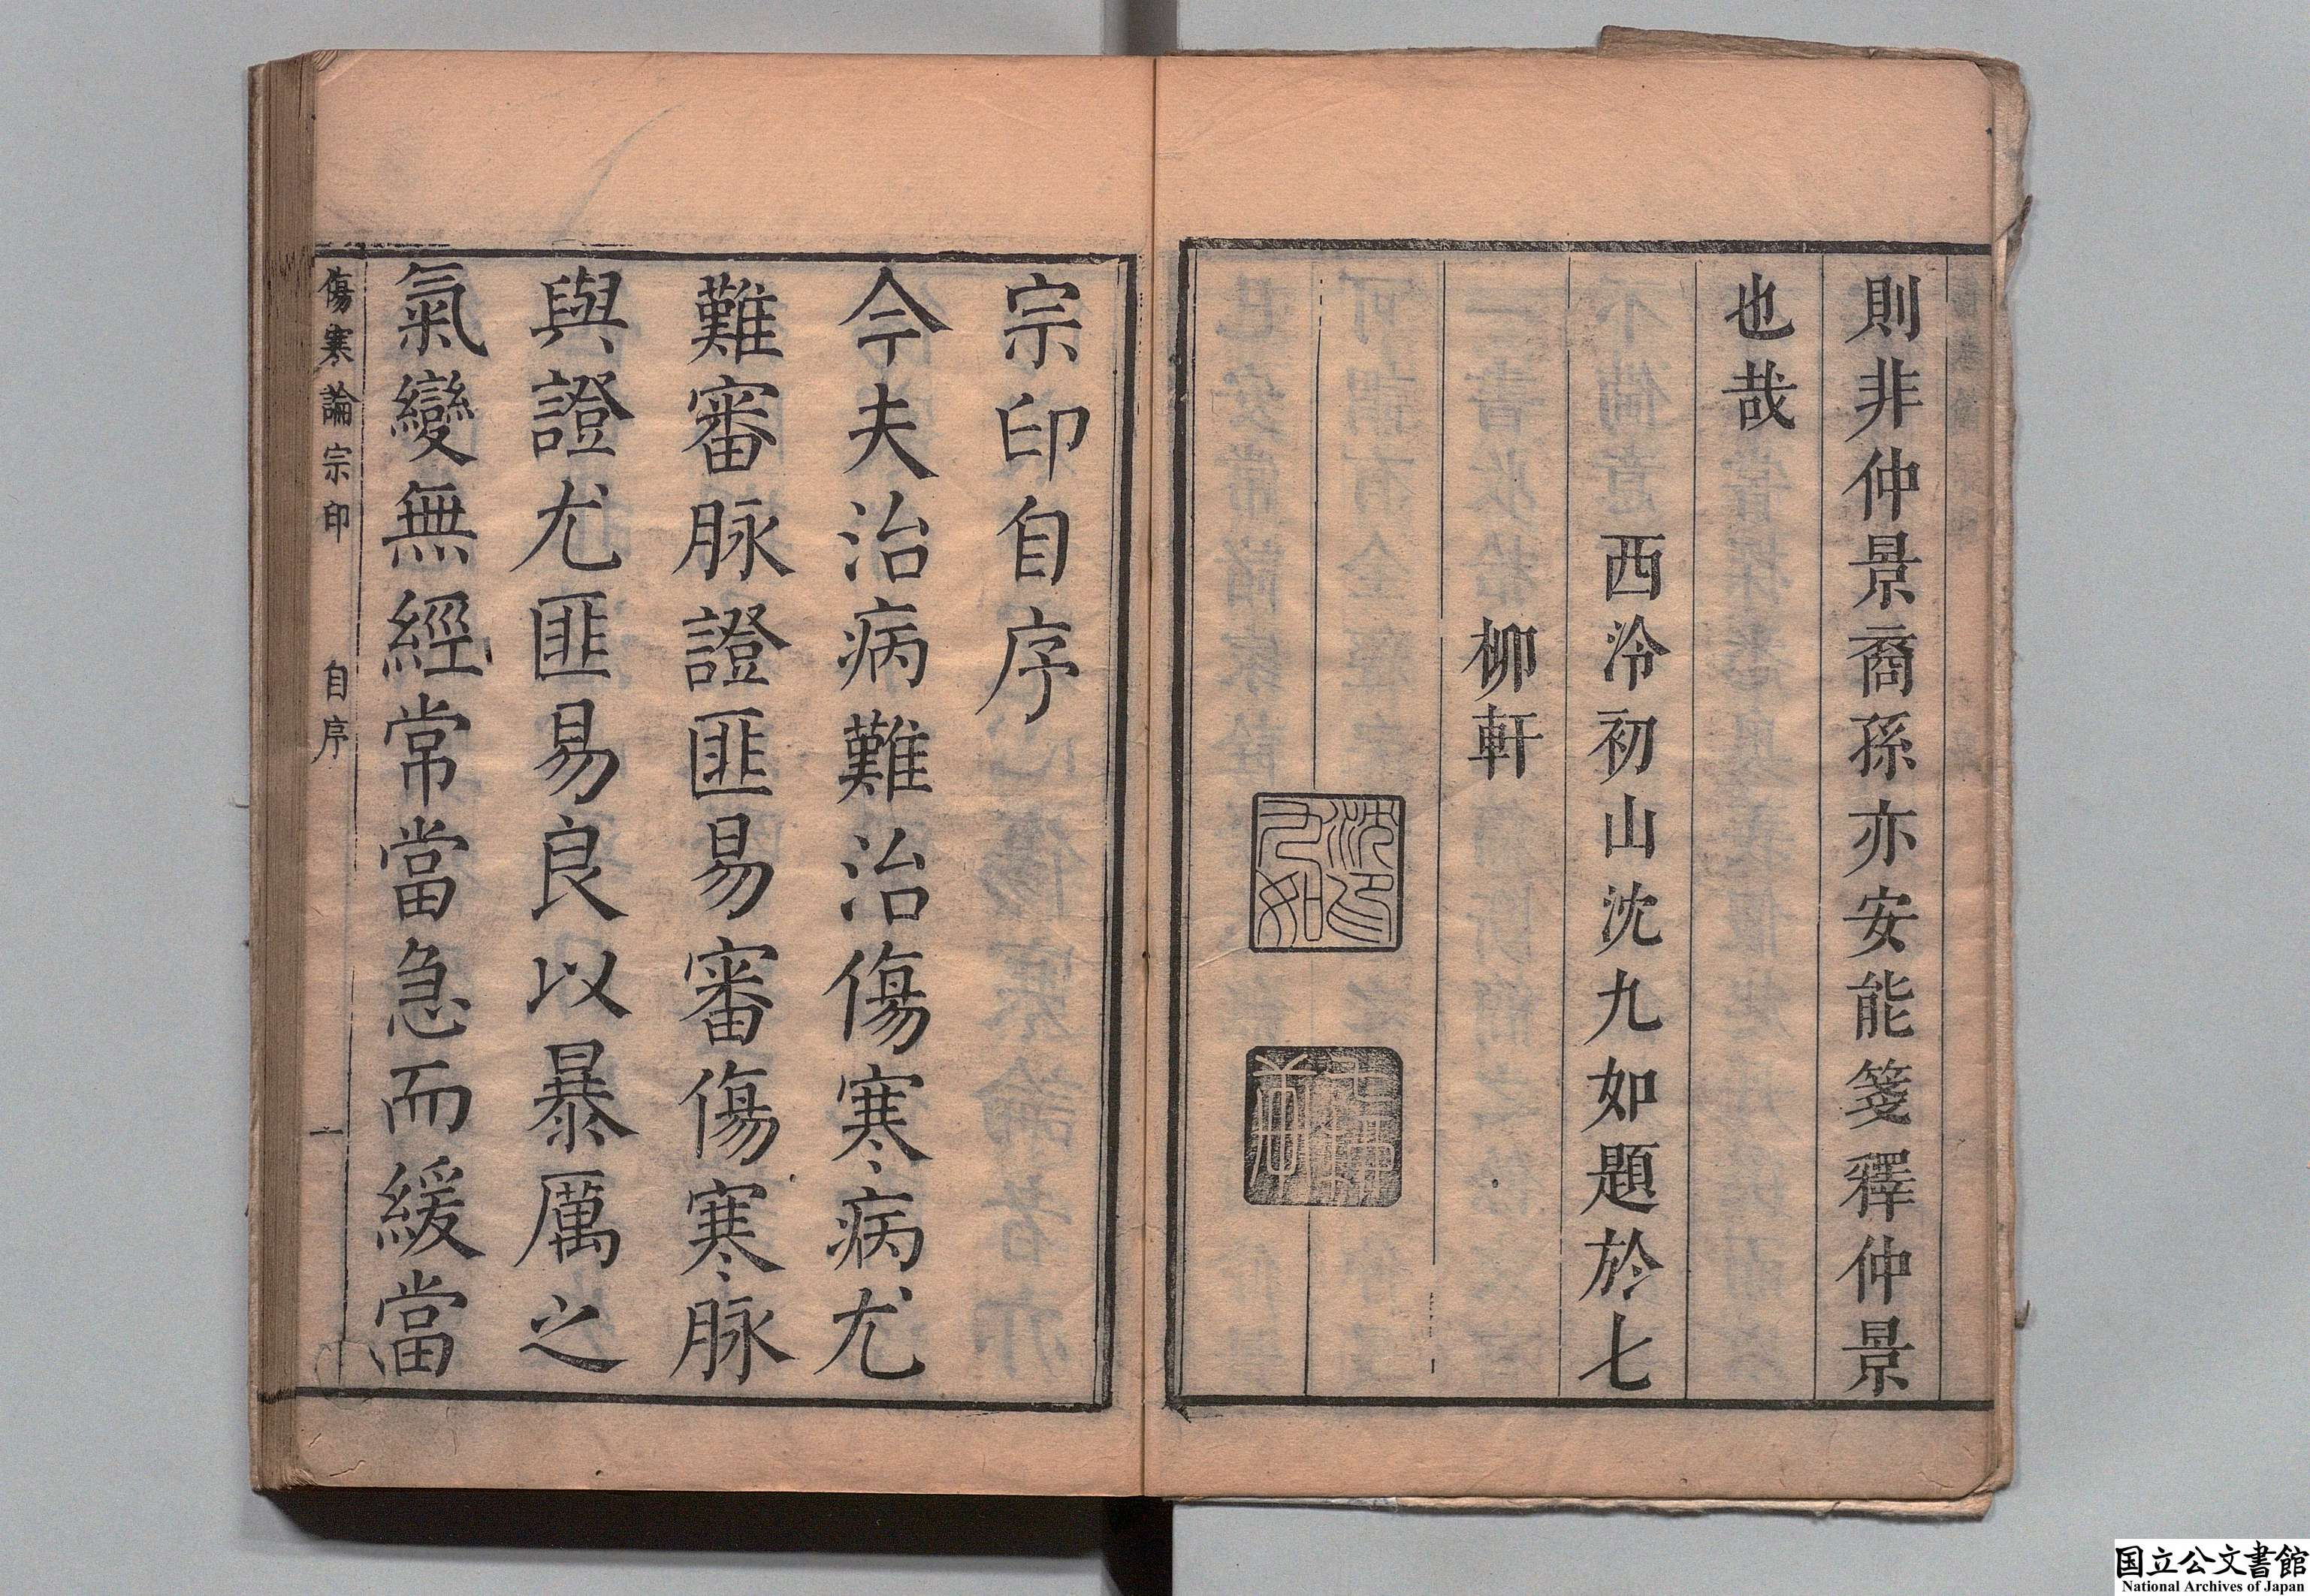 則非仲景裔孫亦安能箋釋仲景
也哉
西泠初山沈九如題於七
柳軒
沈印九如
宗印自序
今夫治病難治傷寒病尤
難審脉證匪易審傷寒脉
與證尤匪易良以暴厲之
氣變無經常當急而緩當
傷寒論宗印 自序 一
国立公文書館
National Archives of Japan